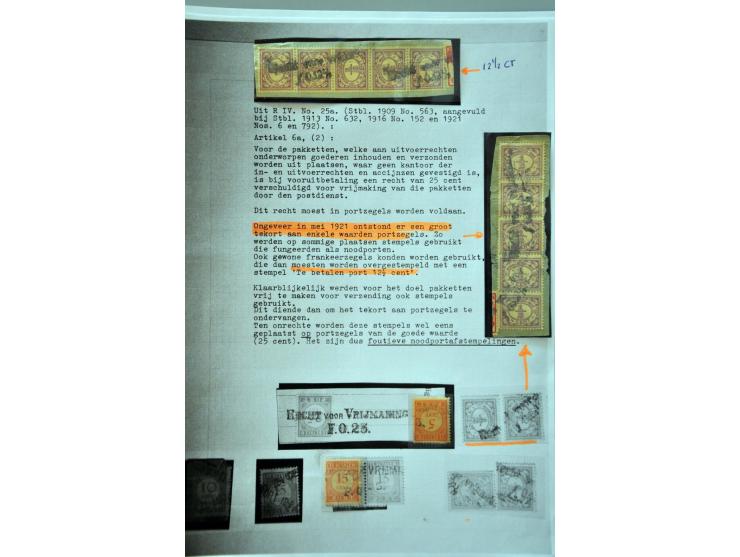 12½ CT
Uit R IV. No. 25a. (Stbl. 1909 No. 563, aangevuld
bij Stbl. 1913 No. 632, 1916 No. 152 en 1921
Nos. 6 en 792). :
Artikel 6a, (2) :
Voor de pakketten, welke aan uitvoerrechten
onderworpen goederen inhouden en verzonden
worden uit plaatsen, waar geen kantoor der
in- en uitvoerrechten en accijnzen gevestigd is,
is bij vooruitbetaling een recht van 25 cent
verschuldigd voor vrijmaking van die pakketten
door den postdienst.
Dit recht moest in portzegels worden voldaan.
Ongeveer in mei 1921 ontstond er een groot
tekort aan enkele waarden portzegels. Zo
werden op sommige plaatsen stempels gebruikt
die fungeerden als noodporten.
Ook gewone frankeerzegels konden worden gebruikt,
die dan moesten worden overgestempeld met een
stempel 'Te betalen port 12½ cent'.
Klaarblijkelijk werden voor het doel pakketten
vrij te maken voor verzending ook stempels
gebruikt.
Dit diende dan om het tekort aan portzegels te
ondervangen.
Ten onrechte worden deze stempels wel eens
geplaatst op portzegels van de goede waarde
(25 cent). Het zijn dus foutieve noodportafstempelingen.
RECHT VOOR VRIJMAKING
F.0.25.
5
10
15
15
15